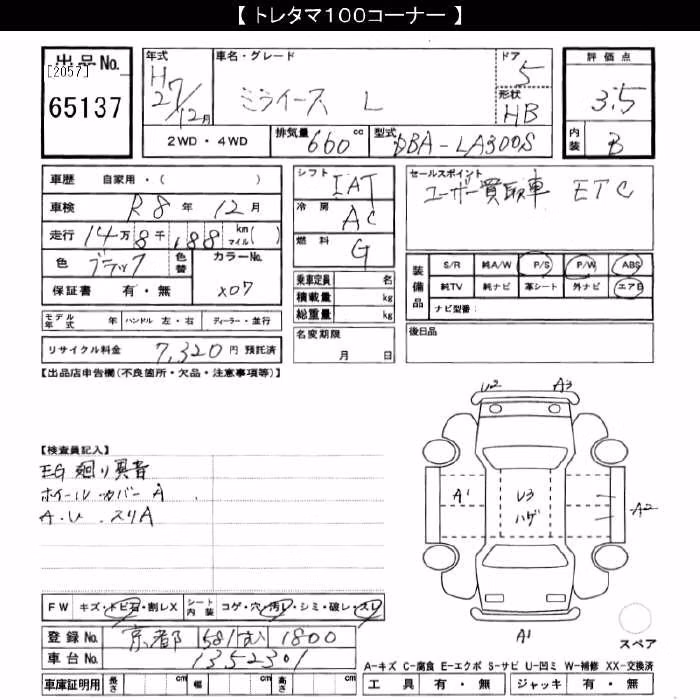 【 トレタマ100コーナー 】
出品No.
[2057]
65137
年式
H27/12月
車名・グレード
ミライース L
ドア
5
形状
HB
評価点
3.5
内装
B
2WD・4WD
排気量 660 cc
型式 DBA-LA300S
車歴 自家用・( )
車検 R8年 12月
走行 14万8千188 km マイル( )
色 ブラック
色替
カラーNo.
X07
保証書 有・無
モデル年式 年 ハンドル 左・右 ディーラー・並行
リサイクル料金 7,320円 預託済
シフト IAT
冷房 AC
燃料 G
乗車定員 名
積載量 kg
総重量 kg
名変期限
月 日
セールスポイント
ユーザー買取車 ETC
装備品
S/R 純A/W P/S P/W ABS
純TV 純ナビ 革シート 外ナビ エアB
ナビ型番( )
後日品
【出品店申告欄(不良箇所・欠品・注意事項等)】
【検査員記入】
EG廻り異音
ホイールカバーA
A.U.スリA
U2 A3
A1 U3 ハゲ A2
A1
スペア
FW キズ・トビ石・割レX シート内装 コゲ・穴・汚レ・シミ・破レ・スレ
登録No. 京都 581む 1800
車台No. 1352301
車庫証明用 長さ cm 幅 cm 高さ cm
A-キズ C-腐食 E-エクボ S-サビ U-凹ミ W-補修 XX-交換済
工具 有・無 ジャッキ 有・無